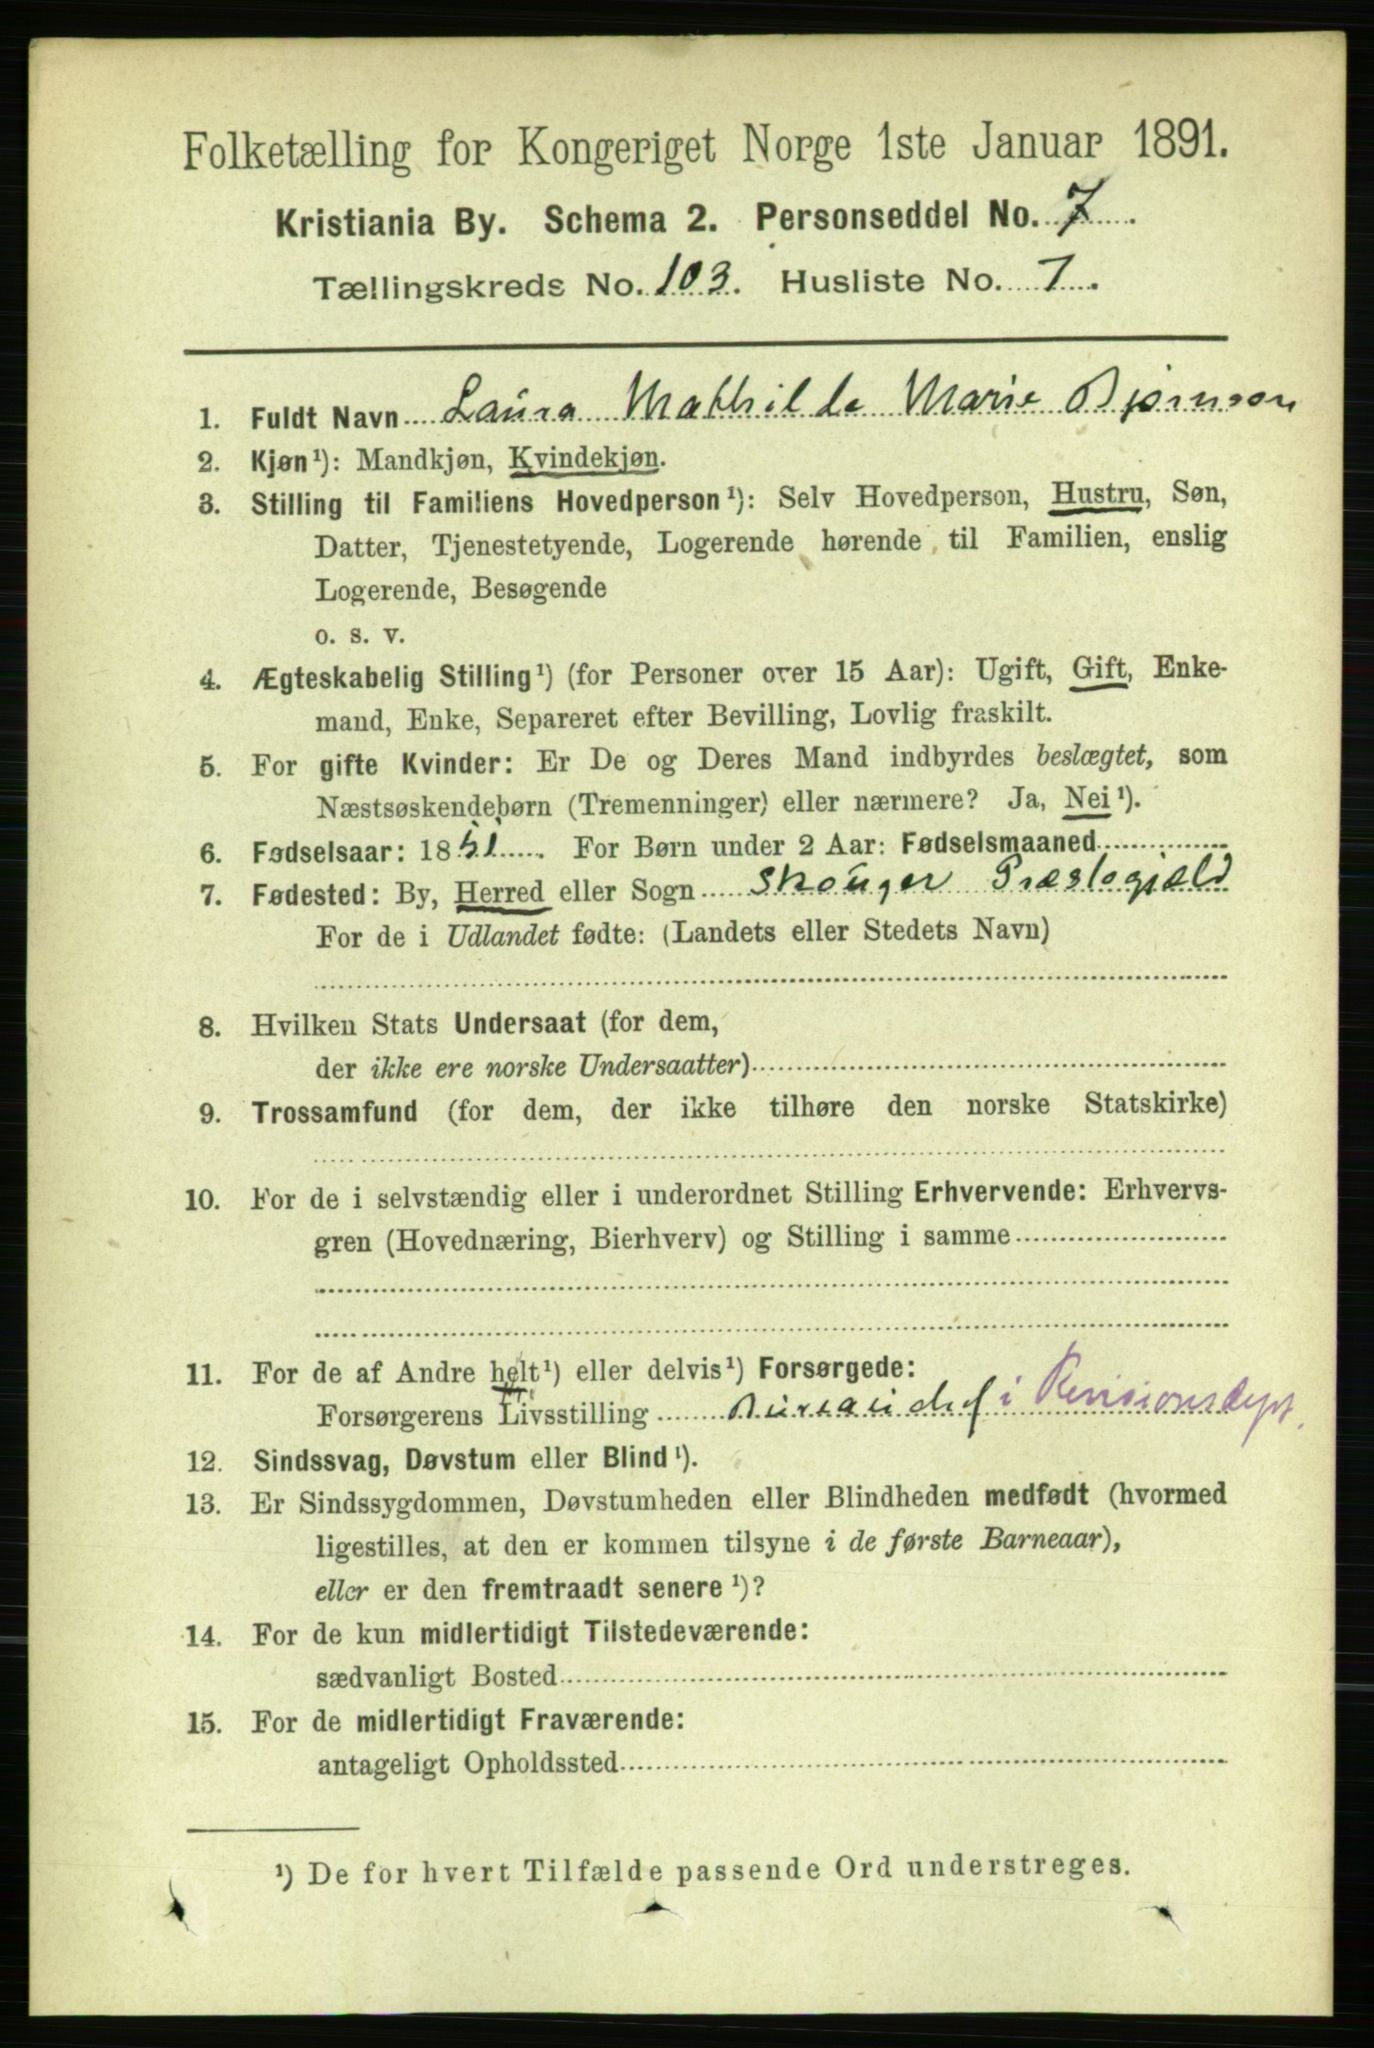 Folketælling for Kongeriget Norge 1ste Januar 1891.
Kristiania By. Schema 2. Personseddel No. 7.
Tællingskreds No. 103. Husliste No. 1.
1. Fuldt Navn Laura Mathilde Marie Bjørnson
2. Kjøn ¹): Mandkjøn, Kvindekjøn.
3. Stilling til Familiens Hovedperson ¹): Selv Hovedperson, Hustru, Søn,
Datter, Tjenestetyende, Logerende hørende til Familien, enslig
Logerende, Besøgende
o. s. v.
4. Ægteskabelig Stilling ¹) (for Personer over 15 Aar): Ugift, Gift, Enke-
mand, Enke, Separeret efter Bevilling, Lovlig fraskilt.
5. For gifte Kvinder: Er De og Deres Mand indbyrdes beslægtet, som
Næstsøskendebørn (Tremenninger) eller nærmere? Ja, Nei ¹).
6. Fødselsaar: 1851. For Børn under 2 Aar: Fødselsmaaned
7. Fødested: By, Herred eller Sogn Skouger Præstegjæld
For de i Udlandet fødte: (Landets eller Stedets Navn)
8. Hvilken Stats Undersaat (for dem,
der ikke ere norske Undersaatter)
9. Trossamfund (for dem, der ikke tilhøre den norske Statskirke)
10. For de i selvstændig eller i underordnet Stilling Erhvervende: Erhvervs-
gren (Hovednæring, Bierhverv) og Stilling i samme
11. For de af Andre helt ¹) eller delvis ¹) Forsørgede:
Forsørgerens Livsstilling Bureauchef i Revisionsdept.
12. Sindssvag, Døvstum eller Blind ¹).
13. Er Sindssygdommen, Døvstumheden eller Blindheden medfødt (hvormed
ligestilles, at den er kommen tilsyne i de første Barneaar),
eller er den fremtraadt senere ¹)?
14. For de kun midlertidigt Tilstedeværende:
sædvanligt Bosted
15. For de midlertidigt Fraværende:
antageligt Opholdssted
¹) De for hvert Tilfælde passende Ord understreges.